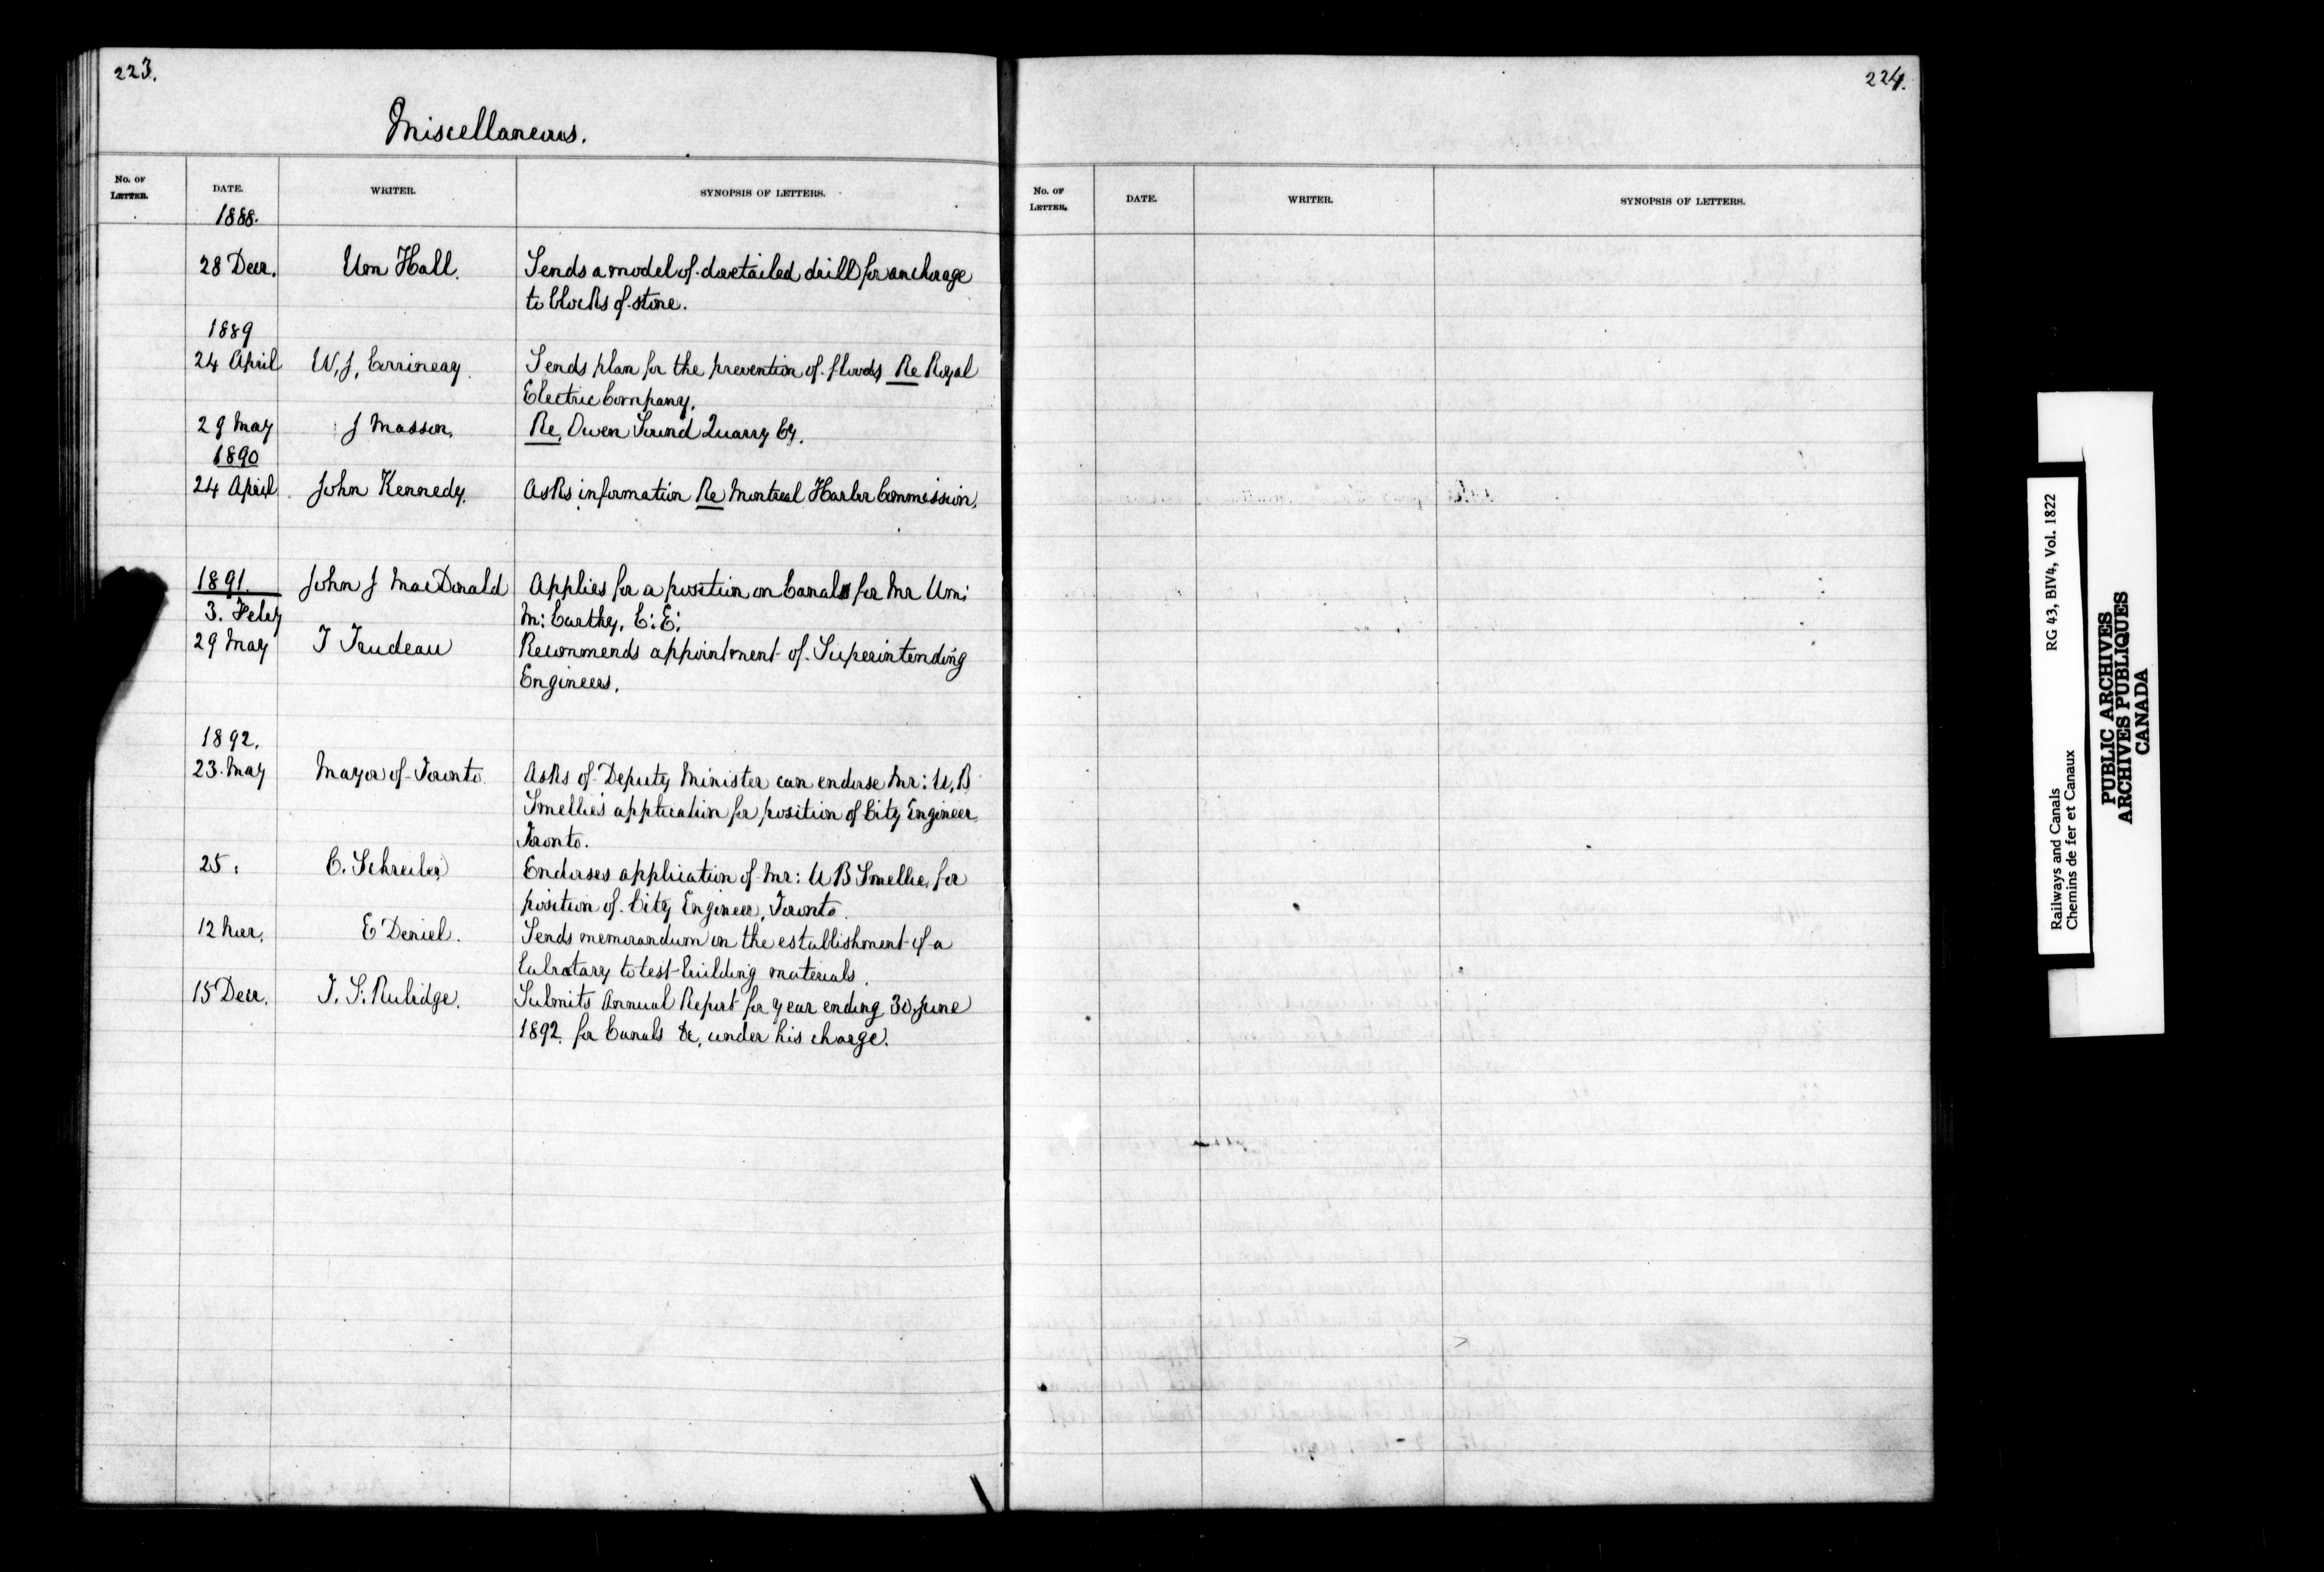 223.
Miscellaneous.
No. OF LETTER.
DATE.
WRITER.
SYNOPSIS OF LETTERS.
1888.
28 Decr. Wm Hall. Sends a model of dovetailed drill for anchorage
to blocks of stone.
1889
24 April W. J. Sends plan for the prevention of floods Re Royal
Electric Company.
29 May J Masson. Re, Owen Sound Quarry Cy.
1890
24 April John Kennedy. Asks information Re Montreal Harbor Commission.
1891. John J MacDonald Applies for a position on Canals for Mr Wm:
3. Feby Mc: Carthy, C:E:
29 May T Trudeau Recommends appointment of Superintending
Engineers.
1892.
23. May Mayor of Toronto. Asks of Deputy Minister can endorse Mr: W. B
Smellie's application for position of City Engineer,
Toronto.
25: C. Schreiber Endorses application of Mr: W B Smellie, for
position of City Engineer, Toronto.
12 Nov. E Deniel. Sends memorandum on the establishment of a
labratary to test building materials.
15 Decr. T. S. Rubidge. Submits Annual Report for year ending 30 June
1892. for Canals &c, under his charge.
224.
No. OF LETTER.
DATE.
WRITER.
SYNOPSIS OF LETTERS.
Railways and Canals RG 43, BIV4, Vol. 1822
Chemins de fer et Canaux
PUBLIC ARCHIVES
ARCHIVES PUBLIQUES
CANADA